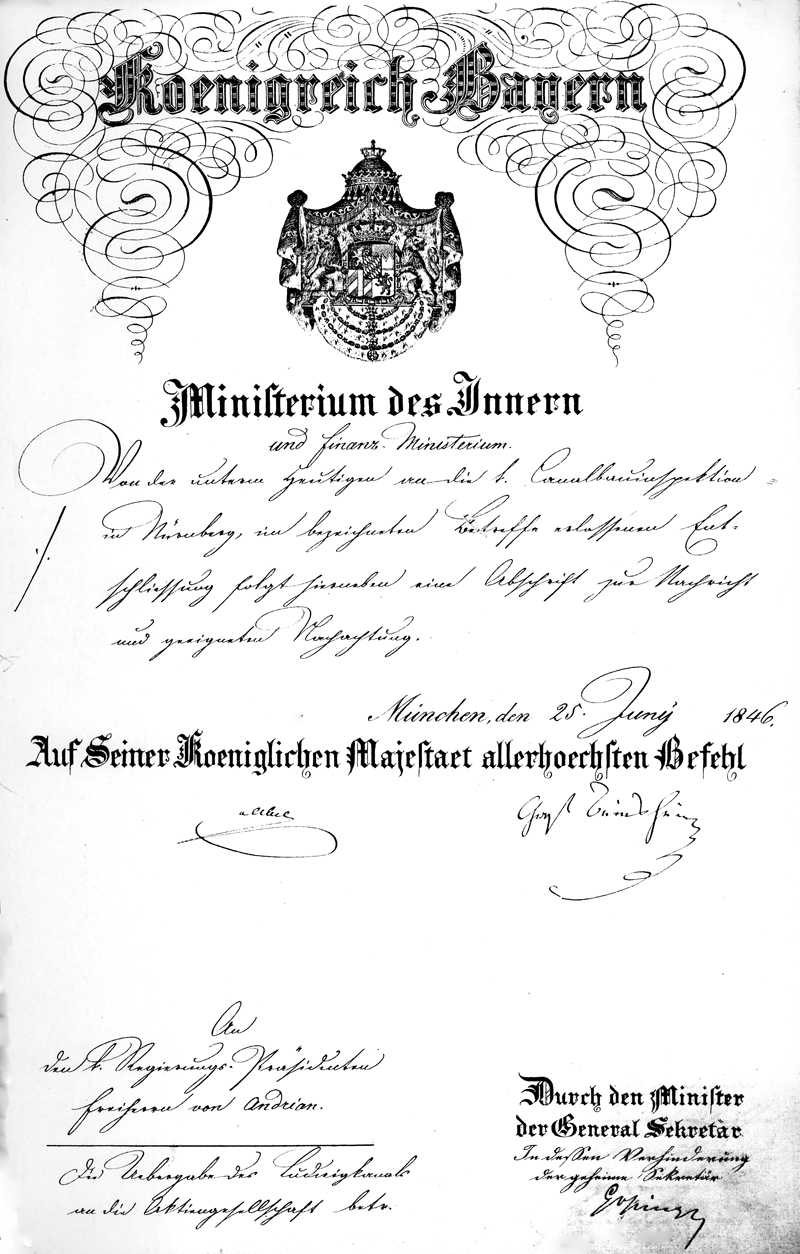 Koenigreich Bayern
Ministerium des Innern
und Finanz-Ministerium.
Von der unterm Heutigen an die k. Canalbauinspektion
in Nürnberg, im bezeichneten Betreffe erlassenen Ent-
schliessung folgt hierneben eine Abschrift zur Nachricht
und geeigneten Nachachtung.
München, den 25. Juny 1846.
Auf Seiner Koeniglichen Majestaet allerhoechsten Befehl
v. Abel
An
den k. Regierungs-Präsidenten
Freiherrn von Andrian.
Die Uebergabe des Ludwigkanals
an die Aktiengesellschaft betr.
Durch den Minister
der General Sekretär
In dessen Verhinderung
der geheime Sekretär